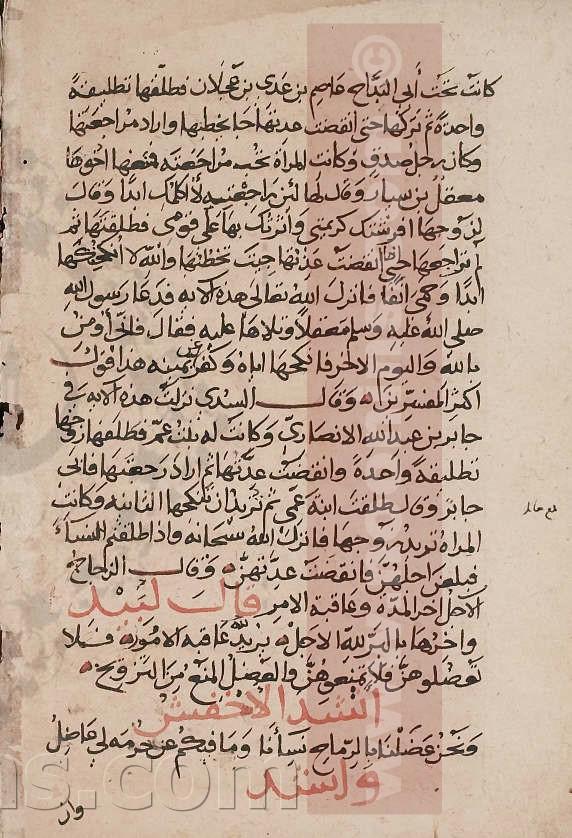 كانت تحت أبي البداح عاصم بن عدي بن عجلان فطلقها تطليقة
واحدة ثم تركها حتى انقضت عدتها جا يخطبها واراد مراجعتها
وكان رجل صدق وكانت المراة تحب مراجعته فمنعها اخوها
معقل بن يسار وقال لها لئن راجعتيه لا اكلمك ابدا وقال
لزوجها افرشتك كريمتي واثرتك بها على قومي فطلقتها ثم
لم تراجعها حتى انقضت عدتها جيت تخطبها والله لا انكحتكها
ابدا وحمي انفا فانزل الله تعالى هذه الآية فدعا رسول الله
صلى الله عليه وسلم معقلا وتلاها عليه فقال فاني أومن
بالله واليوم الاخر فانكحها اياه وكفر عن يمينه هذا قول
اكثر المفسرين وقال السدي نزلت هذه الآية في
جابر بن عبدالله الانصاري وكانت له بنت عم فطلقها زوجها
تطليقة واحدة وانقضت عدتها ثم اراد رجعتها فابى
جابر وقال طلقت ابنة عمي ثم تريد ان تنكحها الثانية وكانت
المراة تريد زوجها فانزل الله سبحانه واذا طلقتم النسآء
فبلغن اجلهن فانقضت عدتهن وقال الزجاج
الاجل اخر المدة وعاقبة الامر قال لبيد
واخزها بالبر لله الاجل يريد عاقبة الامور فلا
تعضلوهن فلا تمنعوهن والعضل المنع من التزويج
انشد الاخفش
ونحن عضلنا بالرماح نسأنا وما فيكم عن حرمة لي عاضل
وانشد
وان
ns.com